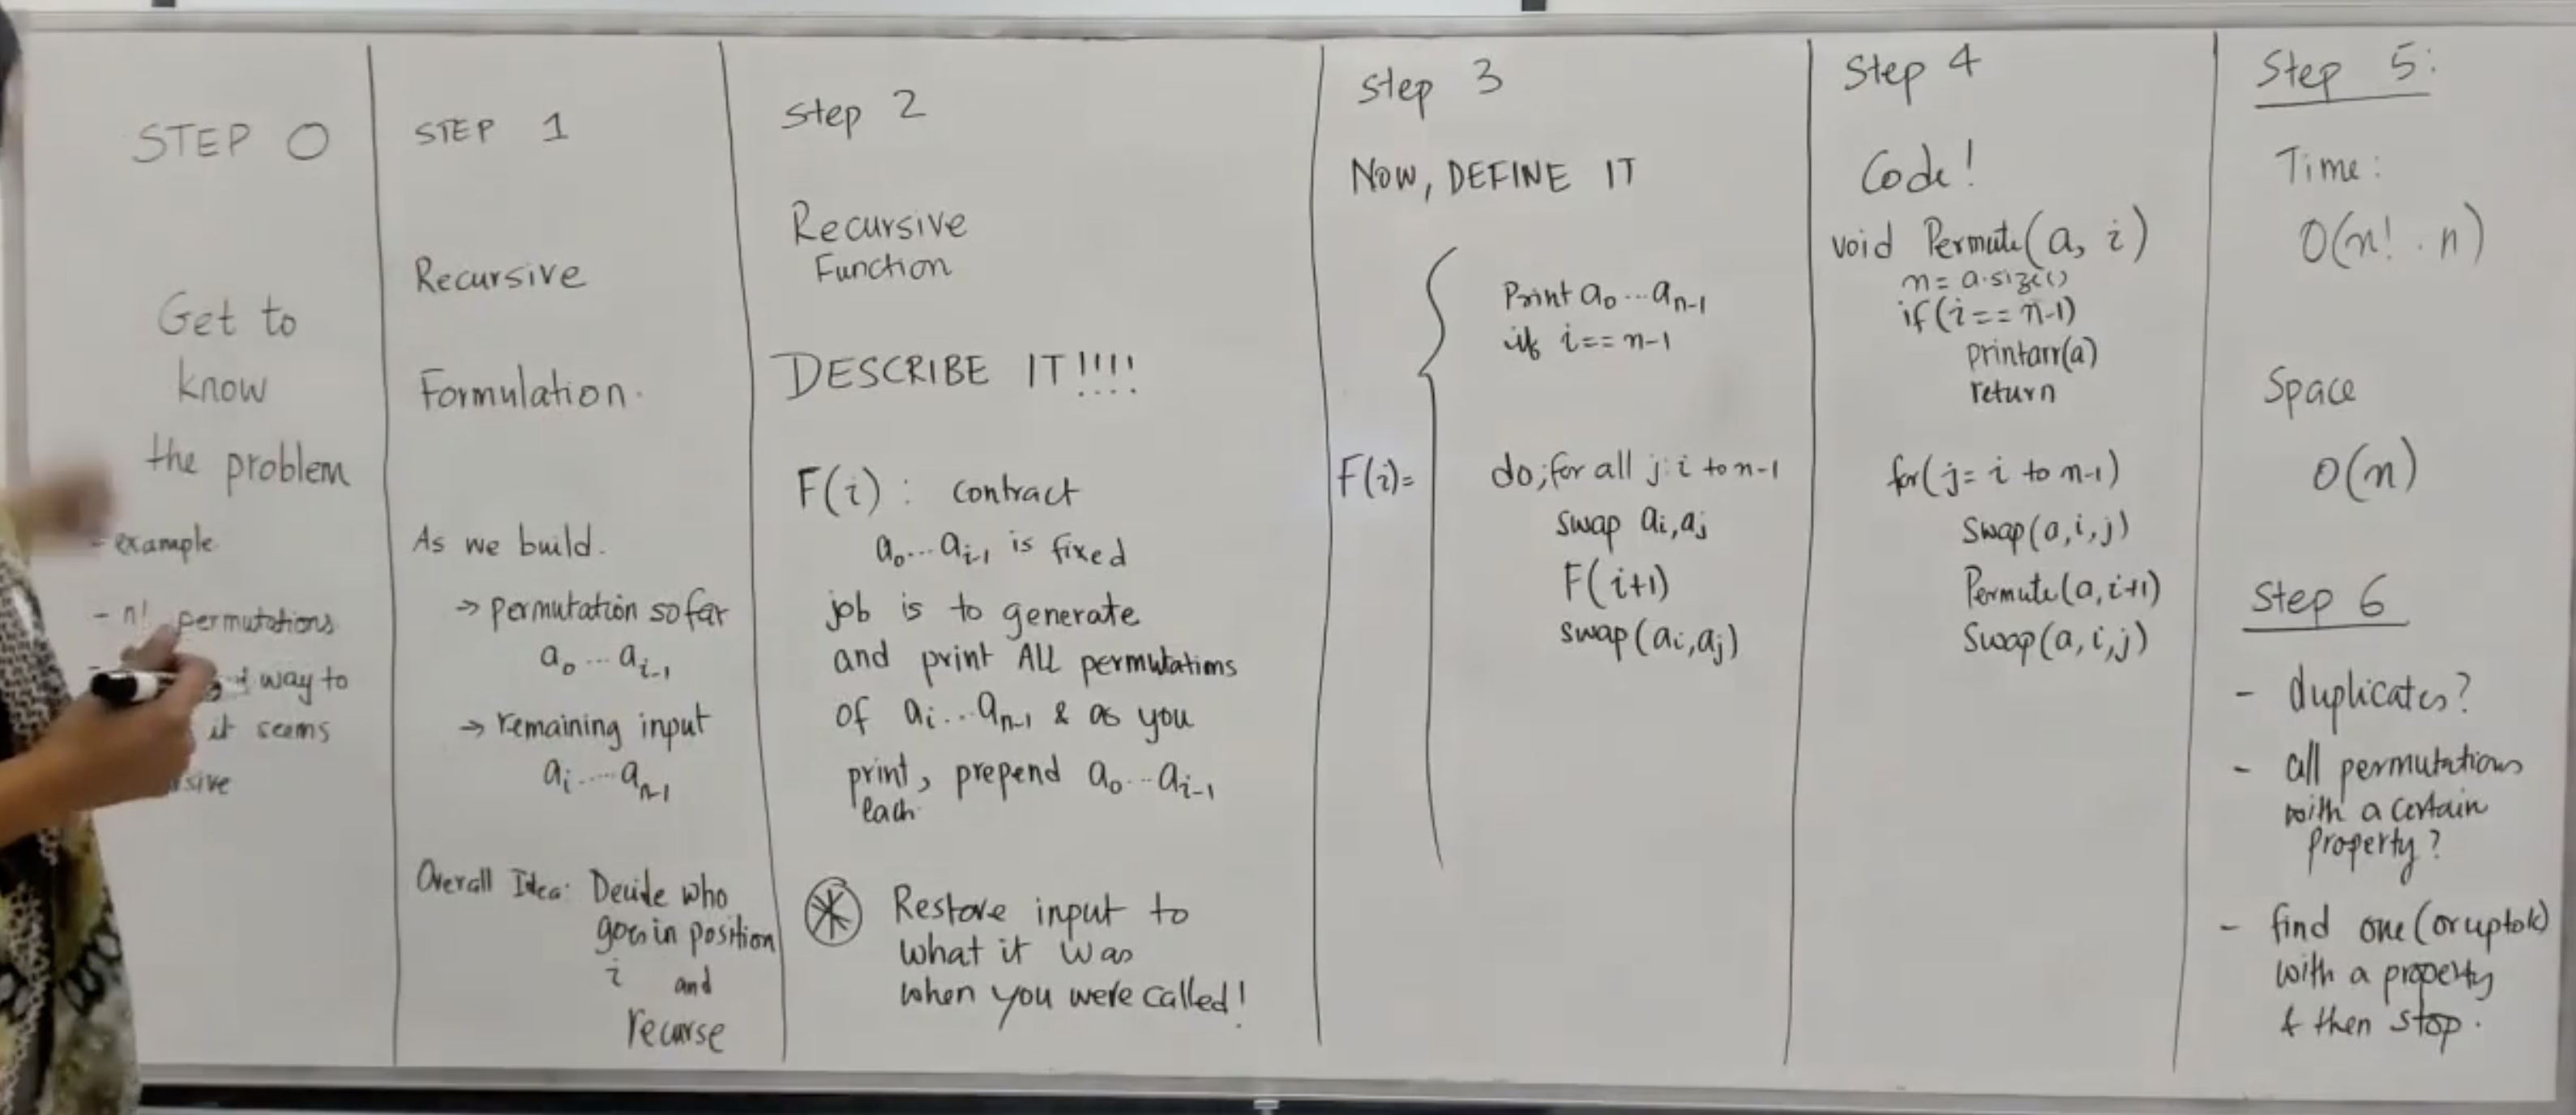 STEP 0
Get to
know
the problem
- example
- n! permutations
way to
it seems
STEP 1
Recursive
Formulation.
As we build.
→ permutation so far
a₀ ... aᵢ₋₁
→ remaining input
aᵢ .... aₙ₋₁
Overall Idea: Decide who
goes in position
i and
recurse
Step 2
Recursive
Function
DESCRIBE IT!!!!
F(i) : contract
a₀...aᵢ₋₁ is fixed
job is to generate
and print ALL permutations
of aᵢ...aₙ₋₁ & as you
print, prepend a₀...aᵢ₋₁
each.
⊛ Restore input to
what it was
when you were called!
Step 3
NOW, DEFINE IT
Print a₀...aₙ₋₁
if i == n-1
F(i)= do; for all j: i to n-1
swap aᵢ,aⱼ
F(i+1)
swap(aᵢ,aⱼ)
Step 4
Code!
void Permute(a, i)
n = a.size()
if (i == n-1)
printarr(a)
return
for(j= i to n-1)
Swap(a,i,j)
Permute(a,i+1)
Swap(a,i,j)
Step 5:
Time:
O(n! . n)
Space
O(n)
Step 6
- duplicates?
- all permutations
with a certain
property?
- find one (or upto k)
with a property
& then stop.